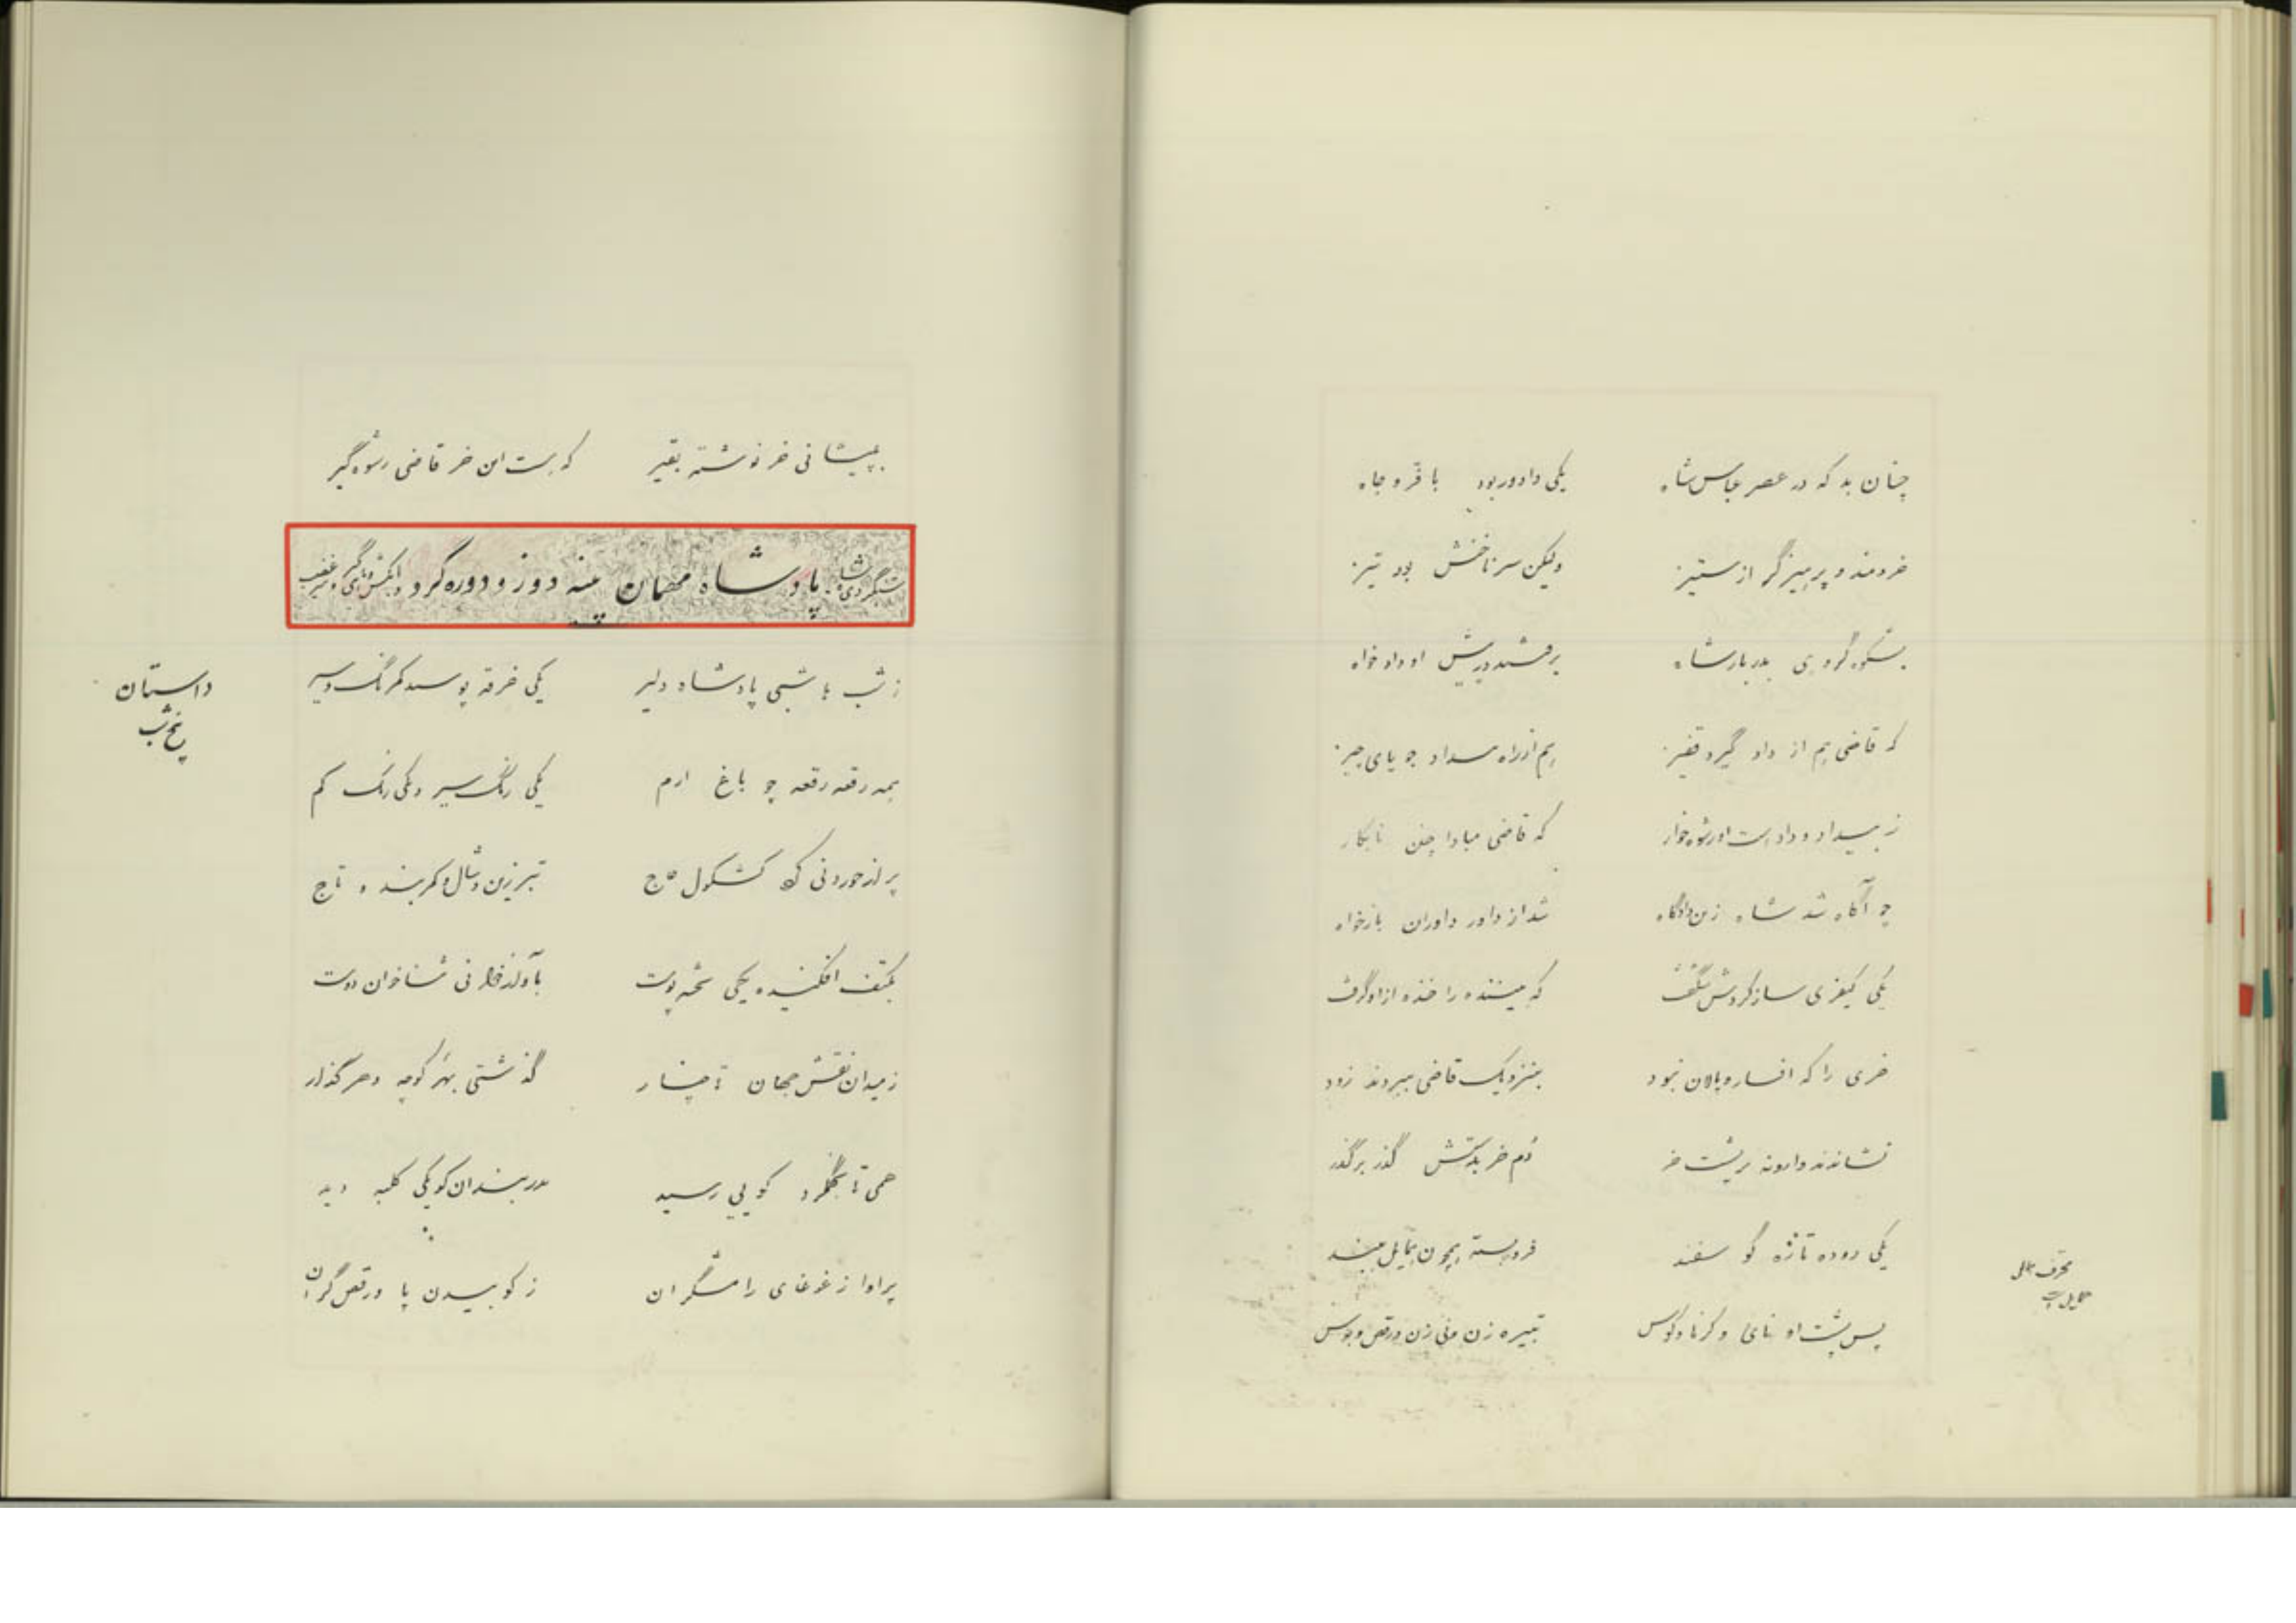 چنان بد که در عصر عباس شاه یکی دادور بود با فرّ و جاه
خردمند و پرهیزگر از ستیز ولیکن سر ناخنش بود تیز
بشکوه گروهی بدربار شاه برفتند در پیش او داد خواه
که قاضی هم از داد گیرد قفیز هم از راه بیداد جویای چیز
ز بیداد و داد است او رشوه خوار که قاضی مبادا چنین نابکار
چو آگاه شد شاه زین دادگاه شد از داور داوران بازخواه
یکی کیفری ساز کردش شگفت که بیننده را خنده از او گرفت
خری را که افسار و پالان نبود بنزدیک قاضی ببردند زود
نشاندند وارونه بر پشت خر دُم خر بدستش گذر بر گذر
یکی روده تازه گوسفند فروبسته همچون حمایل ببند
پس پشت او نای و کرنا و کوس تبیره زن و نی زن و رقص و بوس
به پیشانی خر نوشته بقیر که است این خر قاضی رشوه گیر
پادشاه مهمان پینه دوز و دوره گرد و
ز شب ها شبی پادشاه دلیر یکی خرقه پوسید کمرنگ و سیر
همه رقعه رقعه چو باغ ارم یکی رنگ سیر و یکی رنگ کم
پر از خوردنی کشکول عاج تبرزین و شال و کمربند و تاج
بکتف افکنیده یکی تخته پوست بآواز خوانی ثناخوان دوست
ز میدان نقش جهان تا چنار گذشتی بهر کوچه و هر گذار
همی تا کویی رسید در بندان کو یکی کلبه دید
پر آوا ز غوغای رامشگران ز کوبیدن پا و رقص گران
داستان
پنج شب